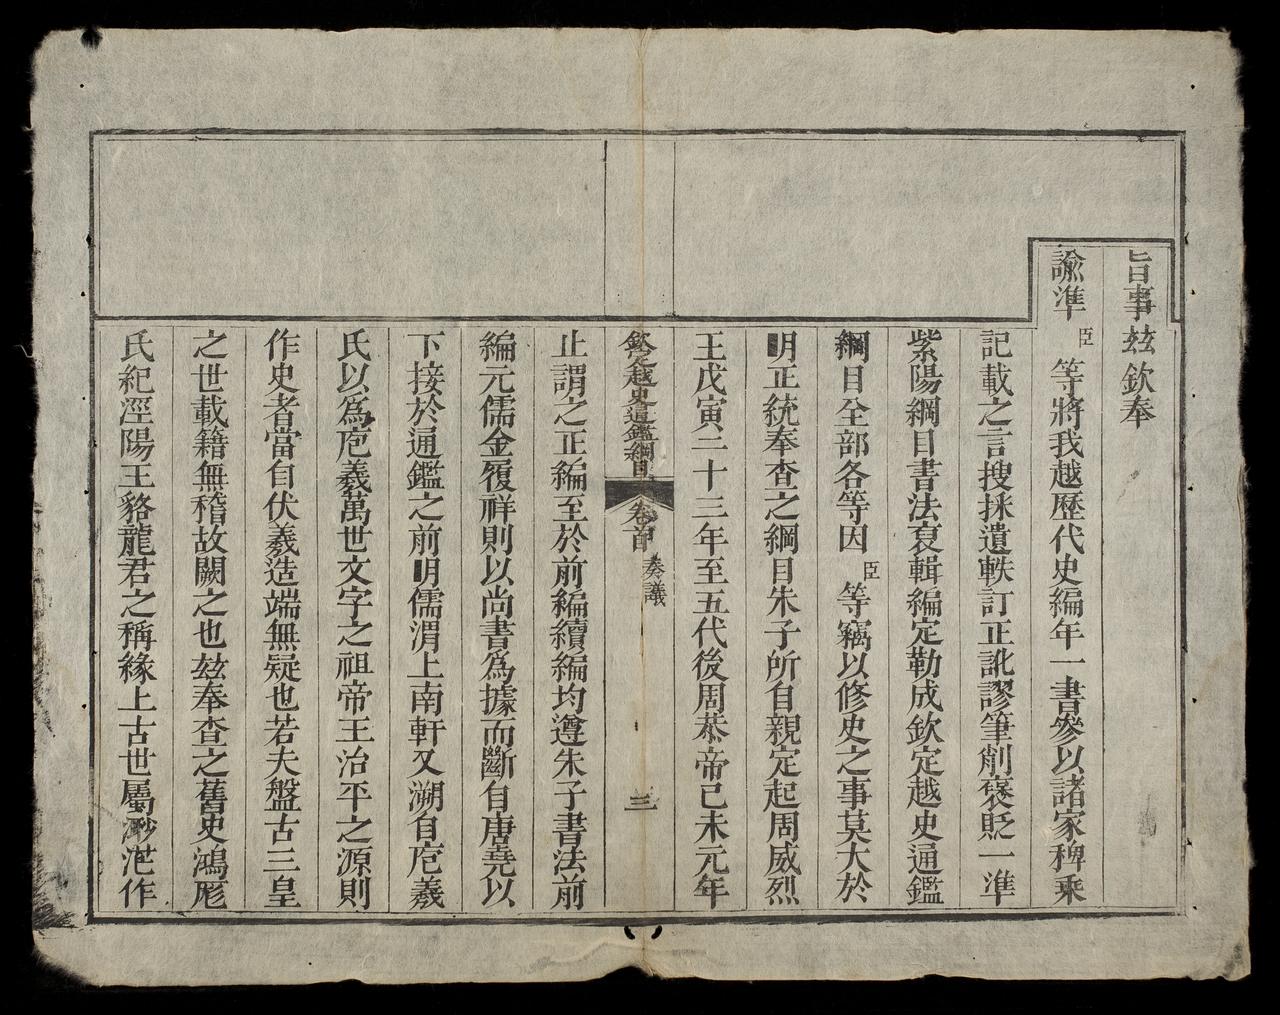 旨事玆欽奉
諭準臣等將我越歷代史編年一書參以諸家稗乘
記載之言搜採遺軼訂正訛謬筆削褒貶一準
紫陽綱目書法裒輯編定勒成欽定越史通鑑
綱目全部各等因臣等竊以修史之事莫大於
明正統奉查之綱目朱子所自親定起周威烈
王戊寅二十三年至五代後周恭帝己未元年
欽定越史通鑑綱目 卷首 奏議 三
止謂之正編至於前編續編均遵朱子書法前
編元儒金履祥則以尚書爲據而斷自唐堯以
下接於通鑑之前明儒渭上南軒又溯自庖羲
氏以爲庖羲萬世文字之祖帝王治平之源則
作史者當自伏羲造端無疑也若夫盤古三皇
之世載籍無稽故闕之也玆奉查之舊史鴻厖
氏紀涇陽王貉龍君之稱緣上古世屬渺茫作